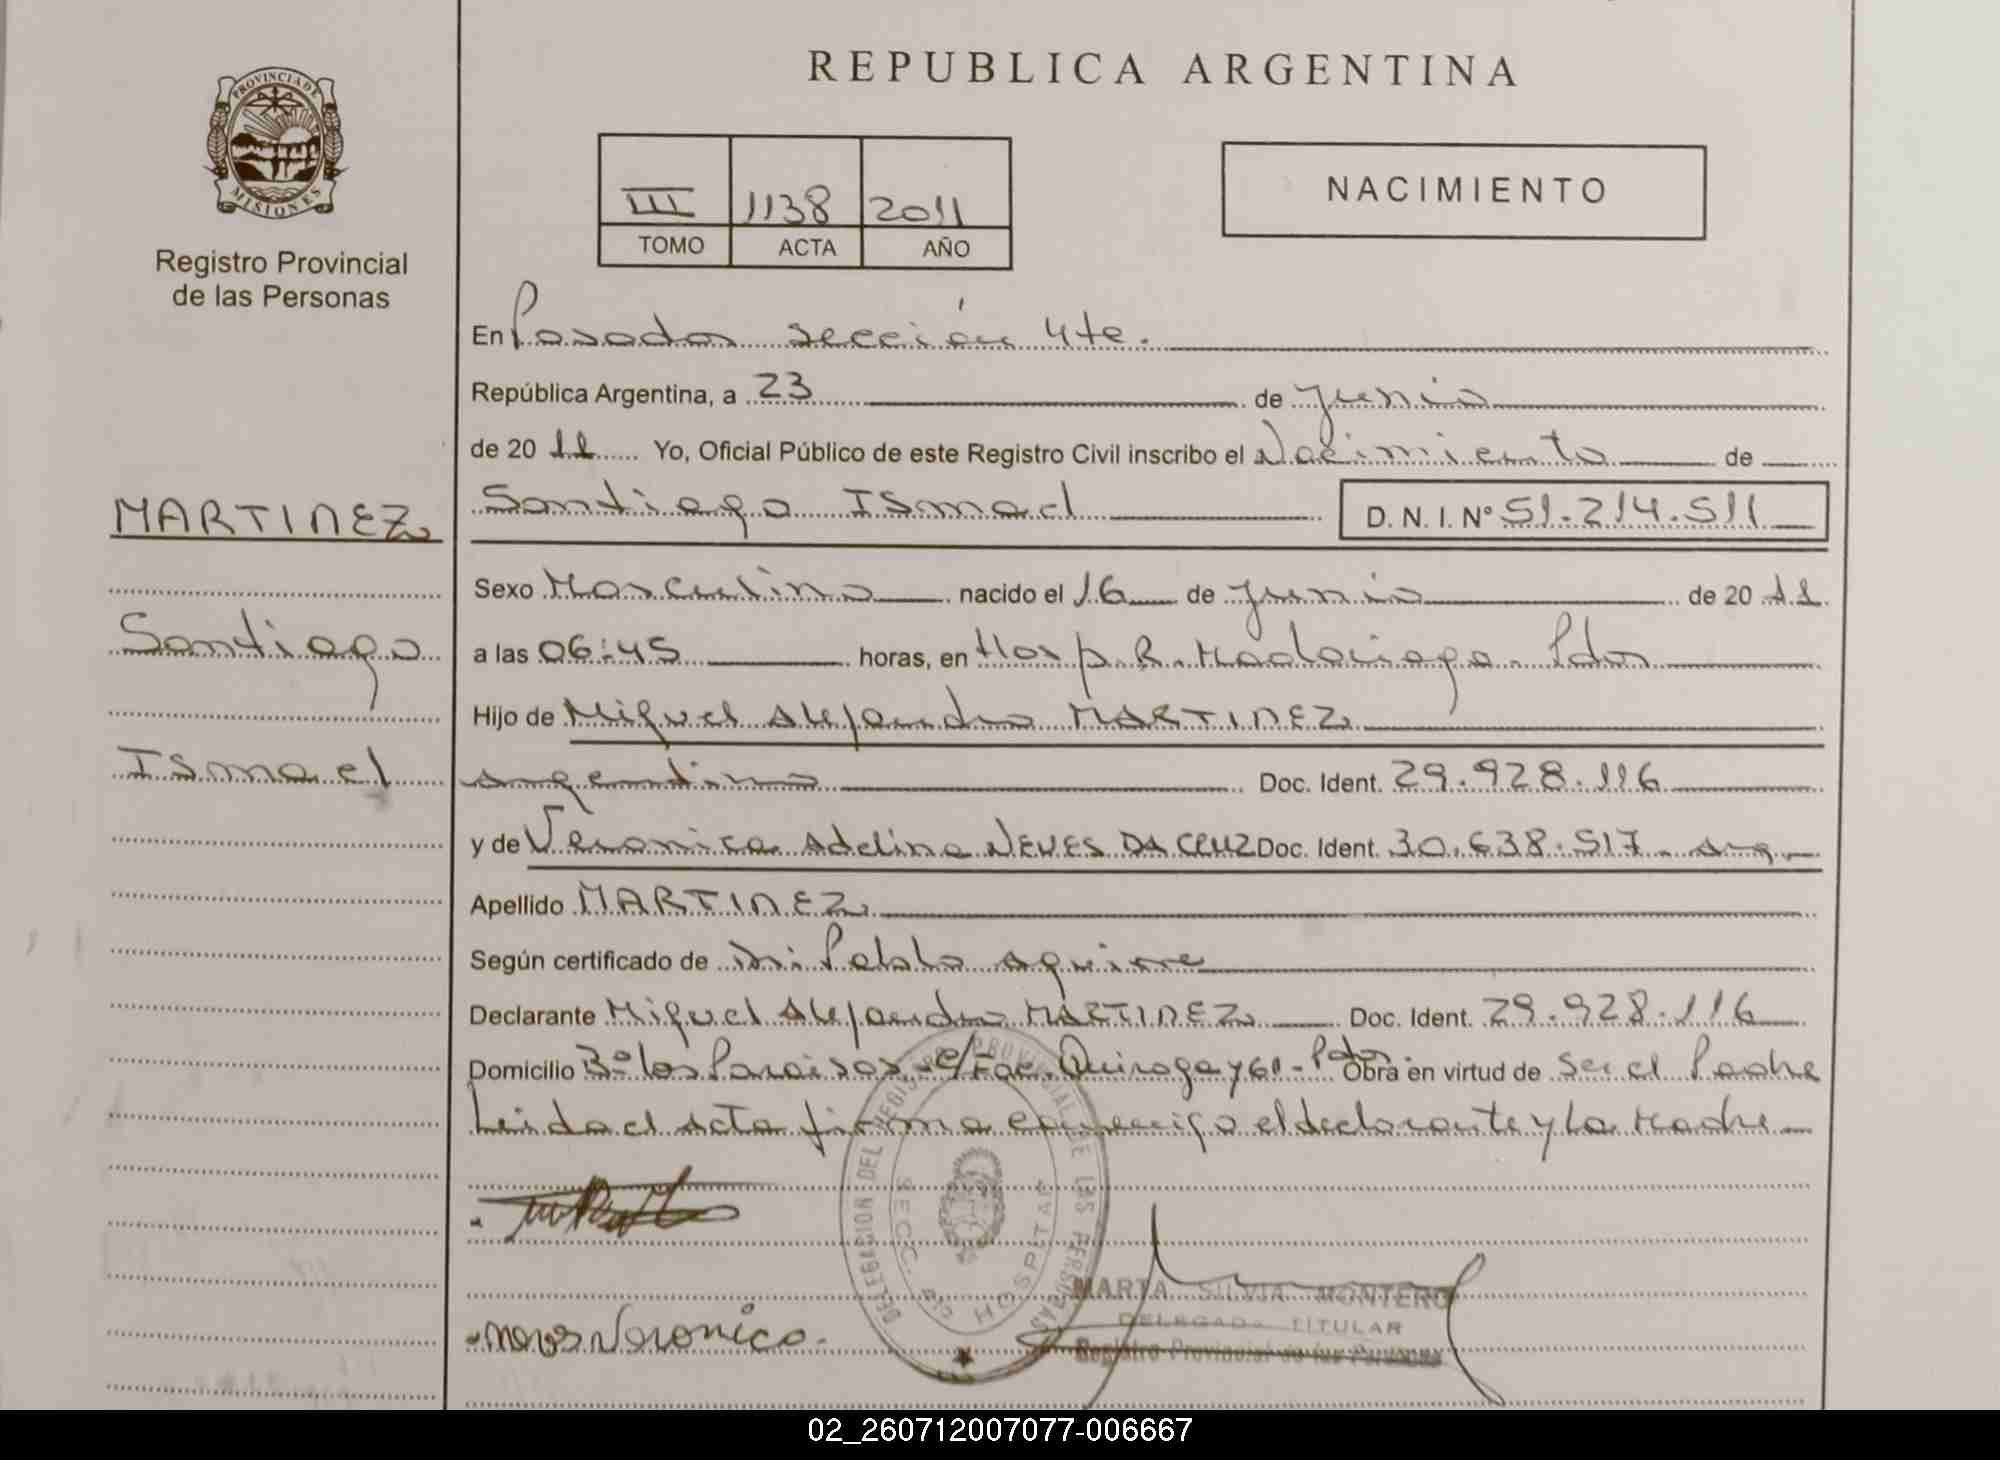 REPUBLICA ARGENTINA
PROVINCIA DE MISIONES
Registro Provincial
de las Personas
III 1138 2011
TOMO ACTA AÑO
NACIMIENTO
En Posadas sección 4te.
República Argentina, a 23 de junio
de 2011 Yo, Oficial Público de este Registro Civil inscribo el Nacimiento de
MARTINEZ
Santiago Ismael
Santiago Ismael D. N. I. Nº 51.214.511
Sexo Masculino nacido el 16 de junio de 2011
a las 06:45 horas, en Hosp. R. Madariaga. Pdas
Hijo de Miguel Alejandro MARTINEZ
argentino Doc. Ident. 29.928.116
y de Veronica Adelina NEVES DA CRUZ Doc. Ident. 30.638.517 - Arg.
Apellido MARTINEZ
Según certificado de Pablo Aguirre
Declarante Miguel Alejandro MARTINEZ Doc. Ident. 29.928.116
Domicilio Bº los Paraisos - e/Fac. Quiroga y 61 - Pdas. Obra en virtud de ser el Padre
Leida el Acta firma conmigo el declarante y la Madre
DELEGACION DEL REGISTRO PROVINCIAL DE LAS PERSONAS
SECC. HOSPITAL
MARTA SILVIA MONTERO
DELEGADA TITULAR
Registro Provincial de las Personas
Neves Veronica.
02_260712007077-006667